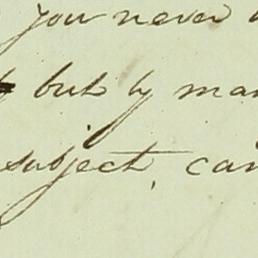 you never
but by
subject, can